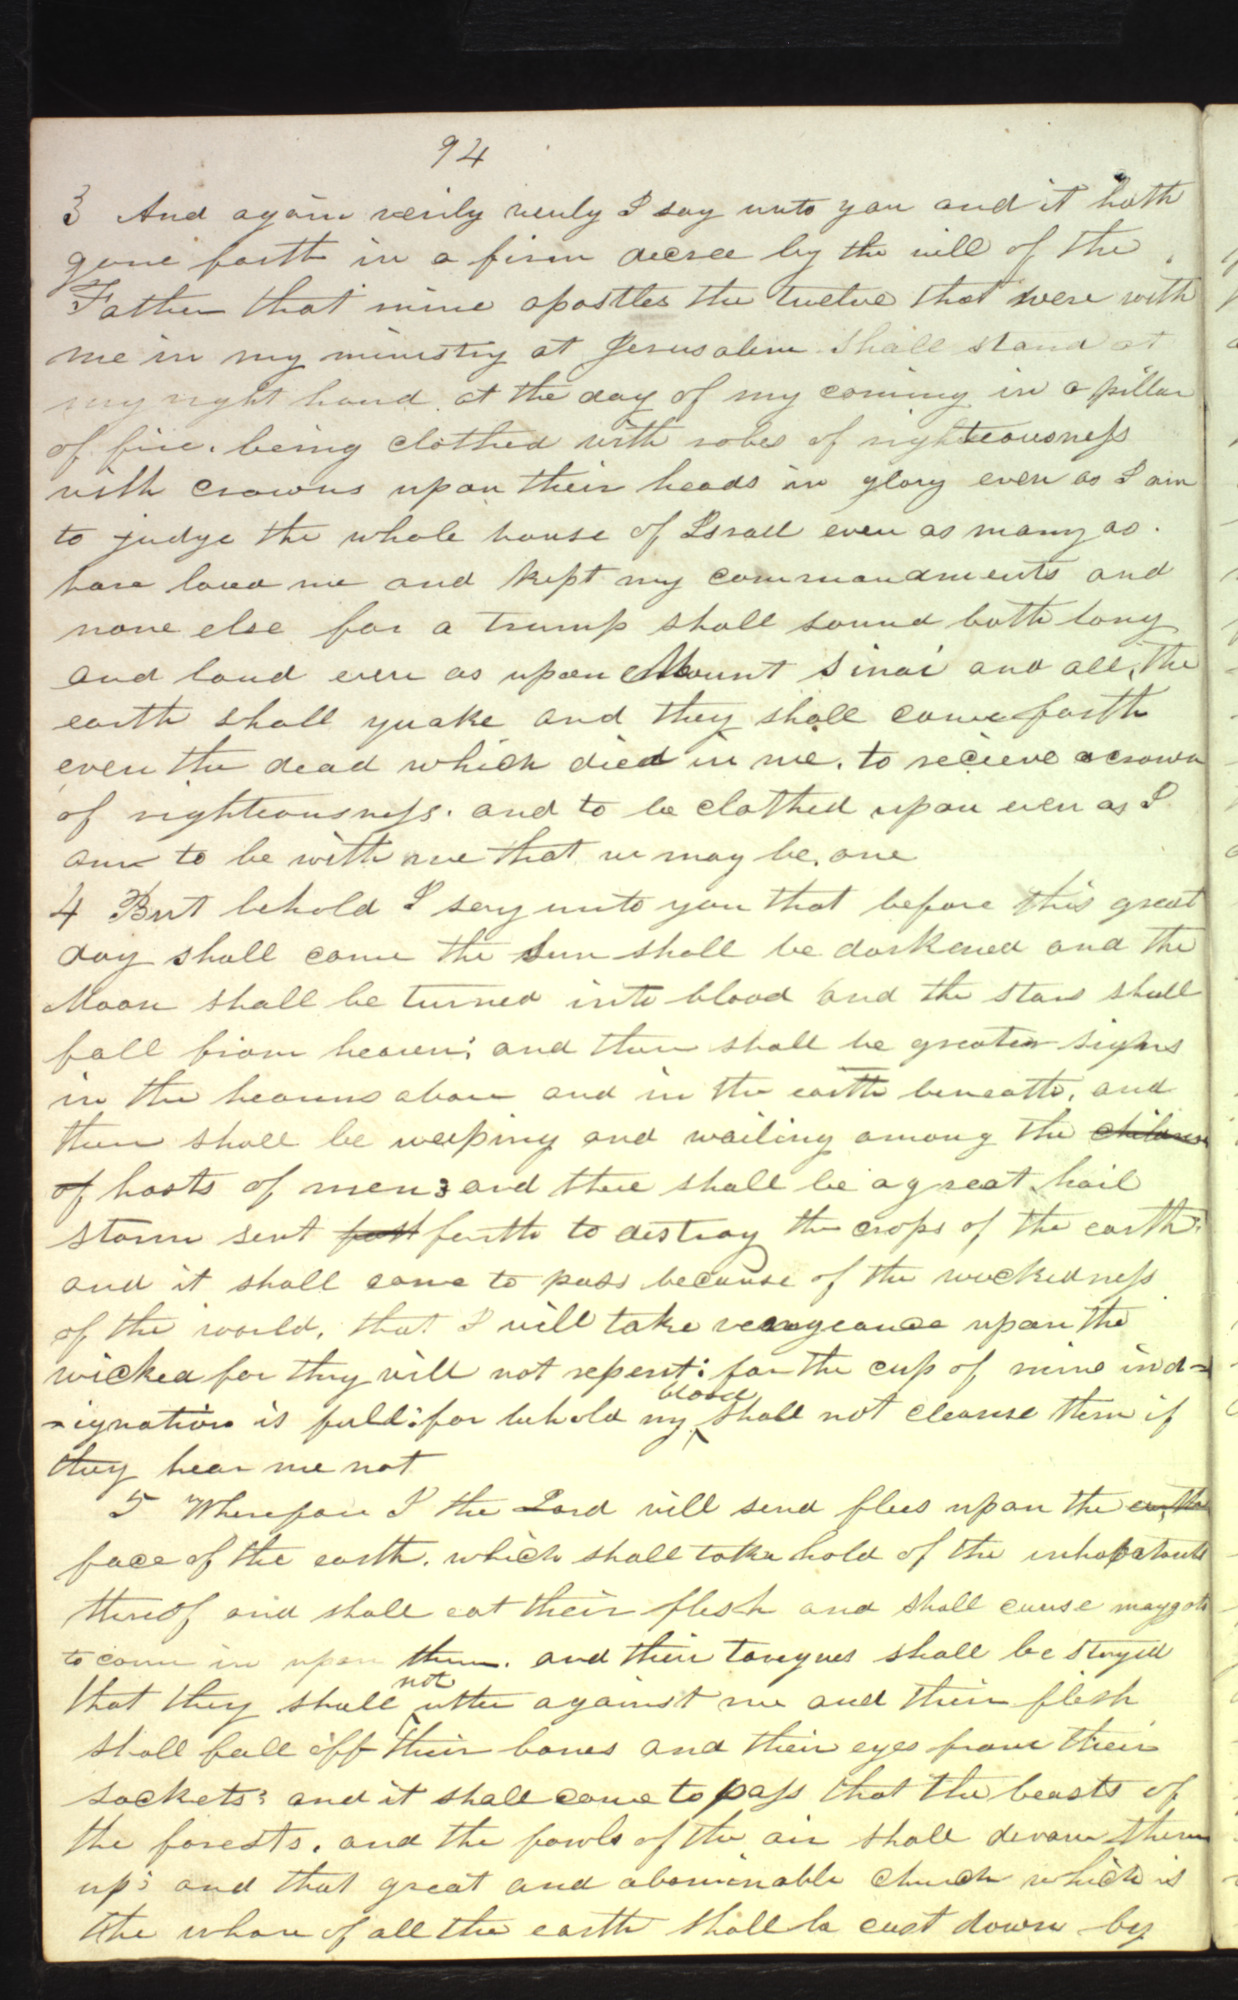 94
3 And again verily verily I say unto you and it hath
gone forth in a firm decree by the will of the
Father that mine apostles the twelve that were with
me in my ministry at Jerusalem shall stand at
my right hand at the day of my coming in a pillar
of fire. being clothed with robes of righteousness
with crowns upon their heads in glory even as I am
to judge the whole house of Israel even as many as
have loved me and kept my commandments and
none else for a trump shall sound both long
and loud even as upon Mount Sinai and all the
earth shall quake and they shall come forth
even the dead which died in me. to recieve a crown
of righteousness. and to be clothed upon even as I
am to be with me that we may be one
4 But behold I say unto you that before this great
day shall come the Sun shall be darkened and the
Moon shall be turned into blood and the stars shall
fall from heaven; and there shall be greater signs
in the heavens above and in the earth beneath, and
there shall be weeping and wailing among the children
of hosts of men; and there shall be a great hail
storm sent fort forth to destroy the crops of the earth;
and it shall come to pass because of the wickedness
of the world, that I will take vengeance upon the
wicked for they will not repent: for the cup of mine ind=
=ignation is full: for behold my blood shall not cleanse them if
they hear me not
5 Wherefore I the Lord will send flies upon the earth
face of the earth. which shall take hold of the inhabitants
thereof and shall eat their flesh and shall cause maggots
to come in upon them. and their tongues shall be stayed
that they shall not utter against me and their flesh
shall fall off their bones and their eyes from their
sockets; and it shall come to pass that the beasts of
the forests. and the fowls of the air shall devour them
up; and that great and abominable church which is
the whore of all the earth shall be cast down by